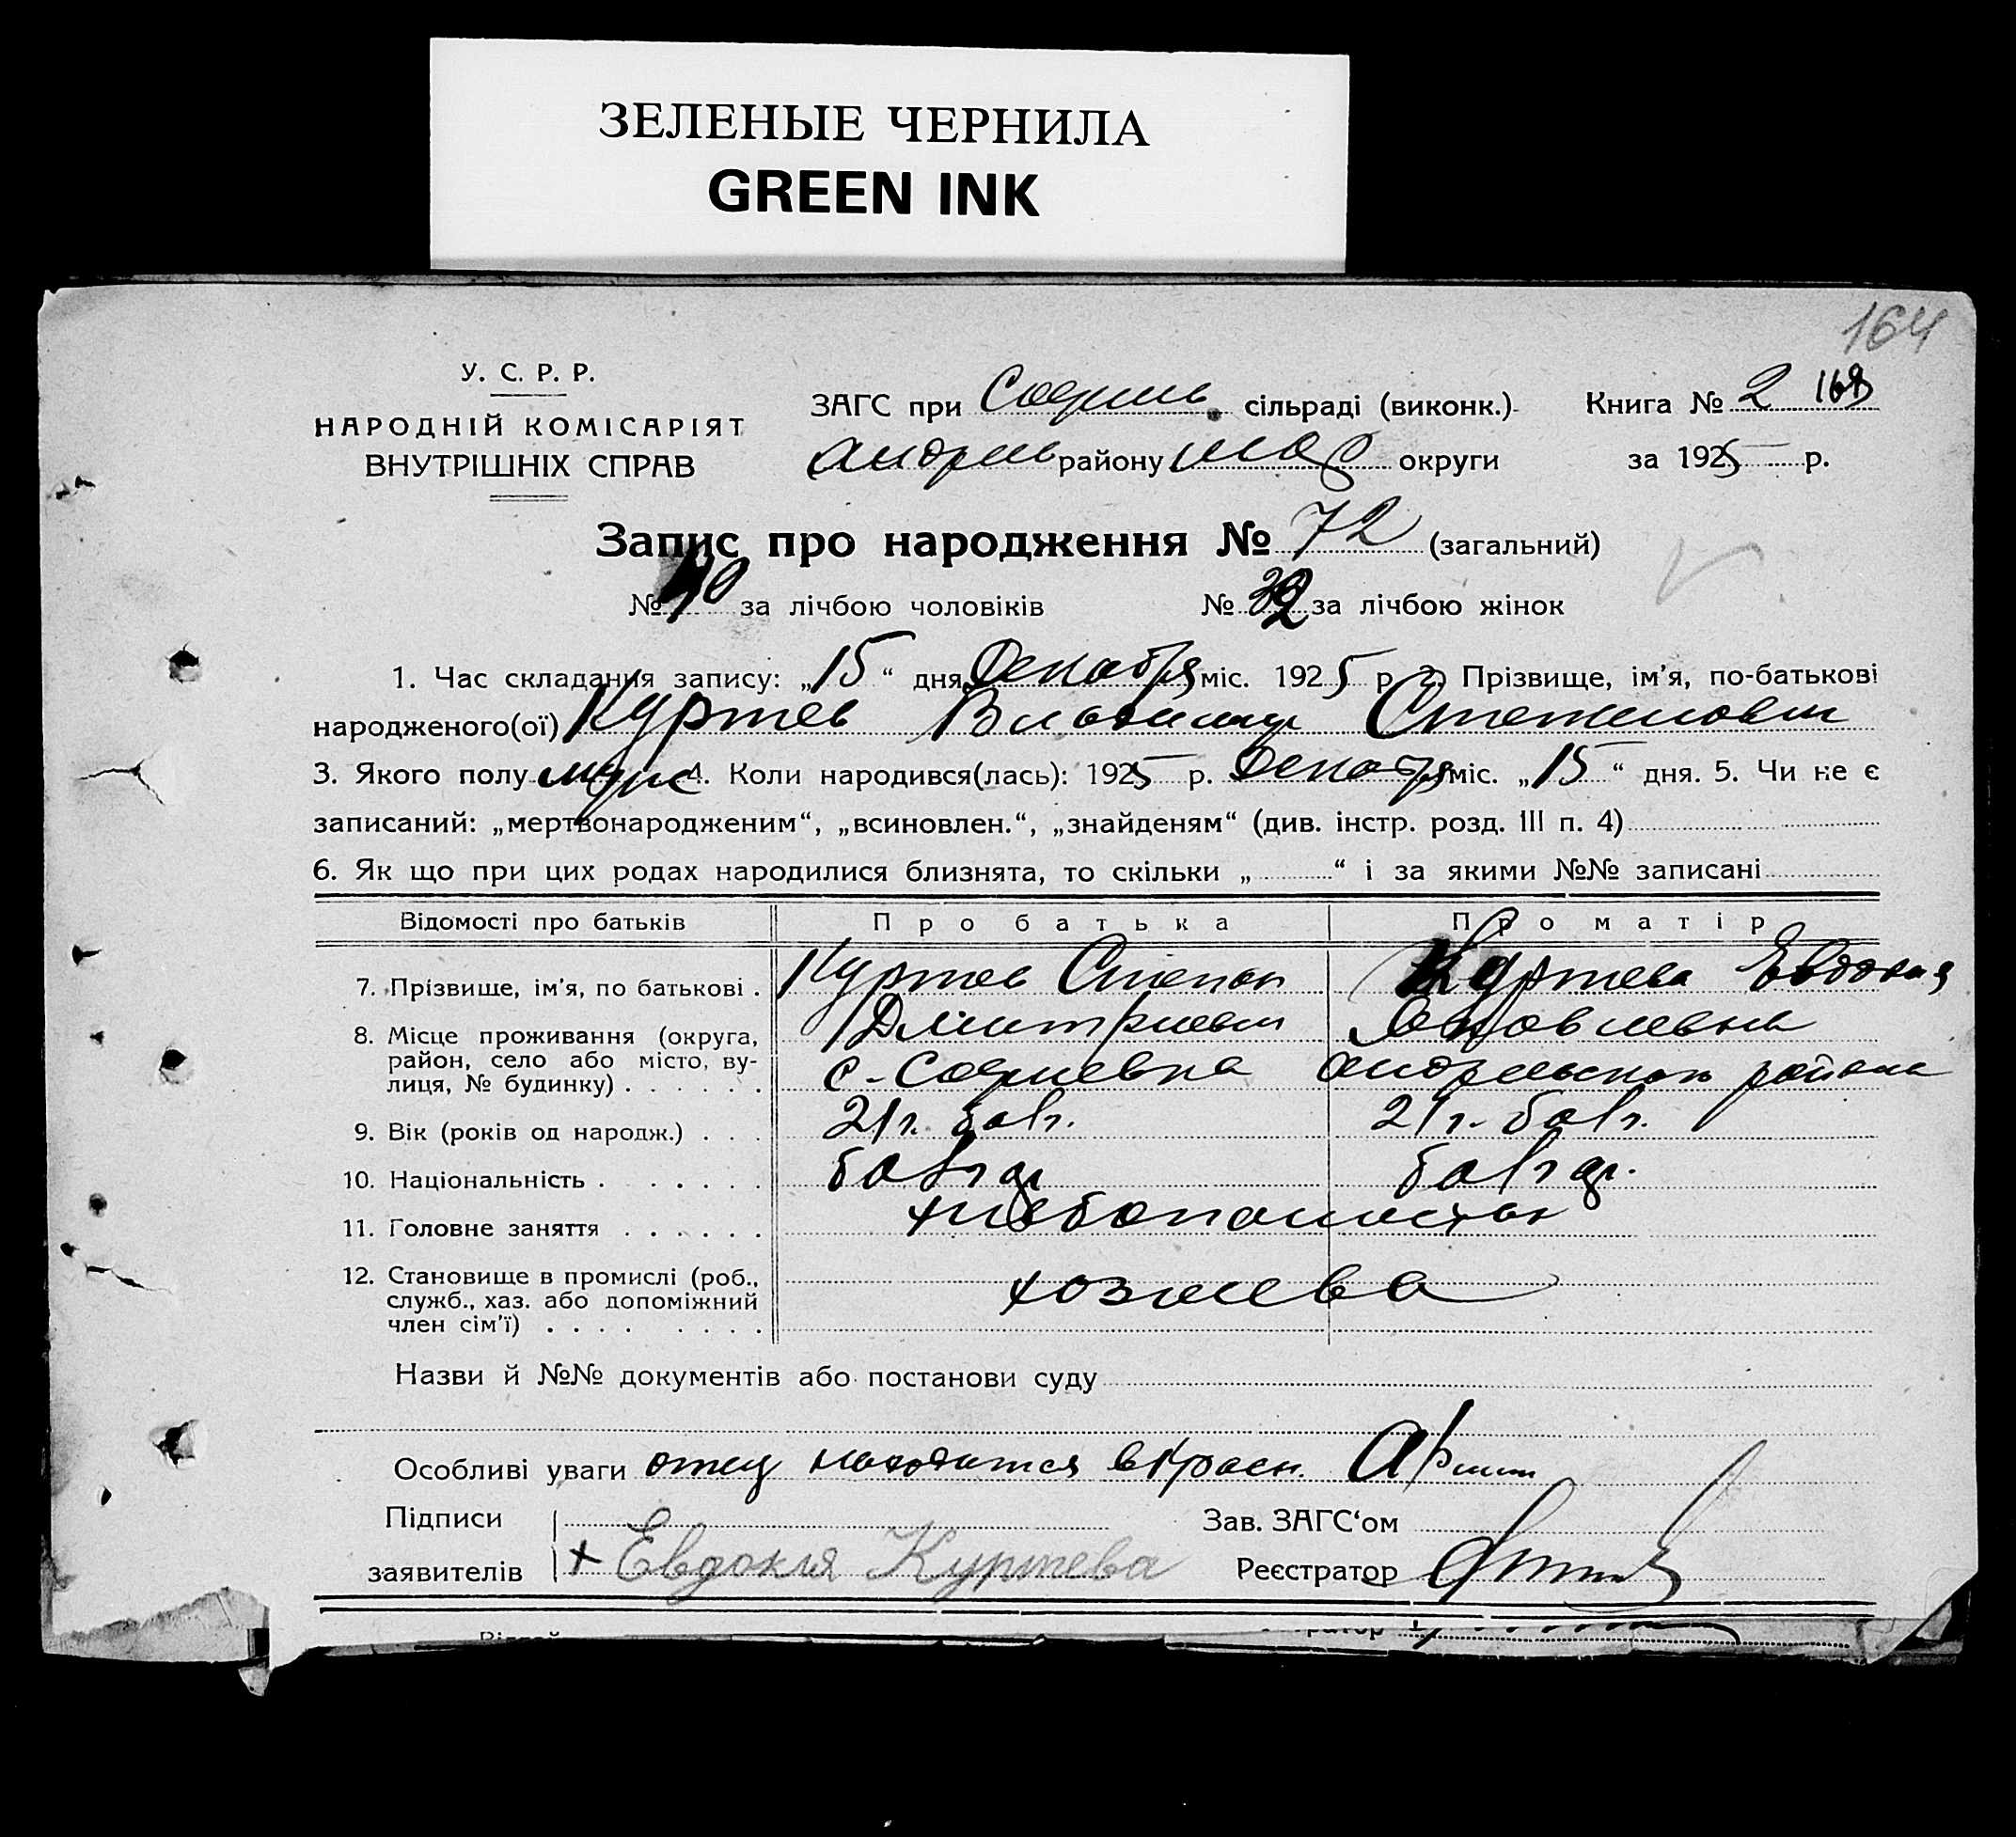 ЗЕЛЕНЫЕ ЧЕРНИЛА
GREEN INK
164
У. С. Р. Р.
НАРОДНІЙ КОМІСАРІЯТ
ВНУТРІШНІХ СПРАВ
ЗАГС при Софиев. сільраді (виконк.)
Книга № 2
Андрив району Мар округи
за 1925 р.
Запис про народження № 72 (загальний)
№ 40 за лічбою чоловіків № 32 за лічбою жінок
1. Час складання запису: „15“ дня Декабря міс. 1925 р. 2. Прізвище, ім'я, по-батькові
народженого(ої) Куртев Степанович
3. Якого полу муж 4. Коли народився(лась): 1925 р. Декабря міс. „15“ дня. 5. Чи не є
записаний: „мертвонародженим“, „всиновлен.“, „знайденям“ (див. інстр. розд. III п. 4)
6. Як що при цих родах народилися близнята, то скільки „ “ і за якими №№ записані
Відомості про батьків Про батька Про матір
7. Прізвище, ім'я, по батькові . Куртев Степан Куртева Евдокия
Дмитриевич Яковлевна
8. Місце проживання (округа,
район, село або місто, ву-
лиця, № будинку) . . . . . . с-Софиевка Андриевского района
9. Вік (років од народж.) . . . 21 г. 21 г.
10. Національність . . . . . . . болгар болгар.
11. Головне заняття . . . . . . хлебопашество
12. Становище в промислі (роб.,
служб., хаз. або допоміжний
член сім'ї) . . . . . . . . хозяева
Назви й №№ документів або постанови суду
Особливі уваги отец находится в Красн. Армии
Підписи
Зав. ЗАГС‘ом
заявителів + Евдокия Куртева
Реєстратор